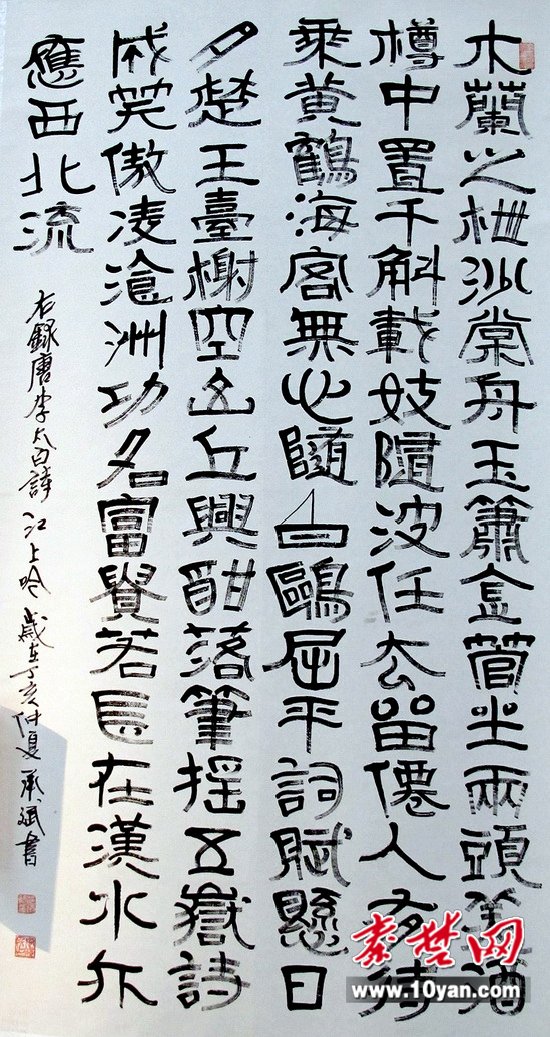 木蘭之枻沙棠舟玉簫金管坐兩頭美酒
樽中置千斛載妓隨波任去留僊人有待
乘黃鶴海客無心隨白鷗屈平詞賦懸日
月楚王臺榭空山丘興酣落筆搖五嶽詩
成笑傲凌滄洲功名富貴若長在漢水亦
應西北流
右錄唐李太白詩江上吟歲在丁亥仲夏承斌書
秦楚网
www.10yan.com